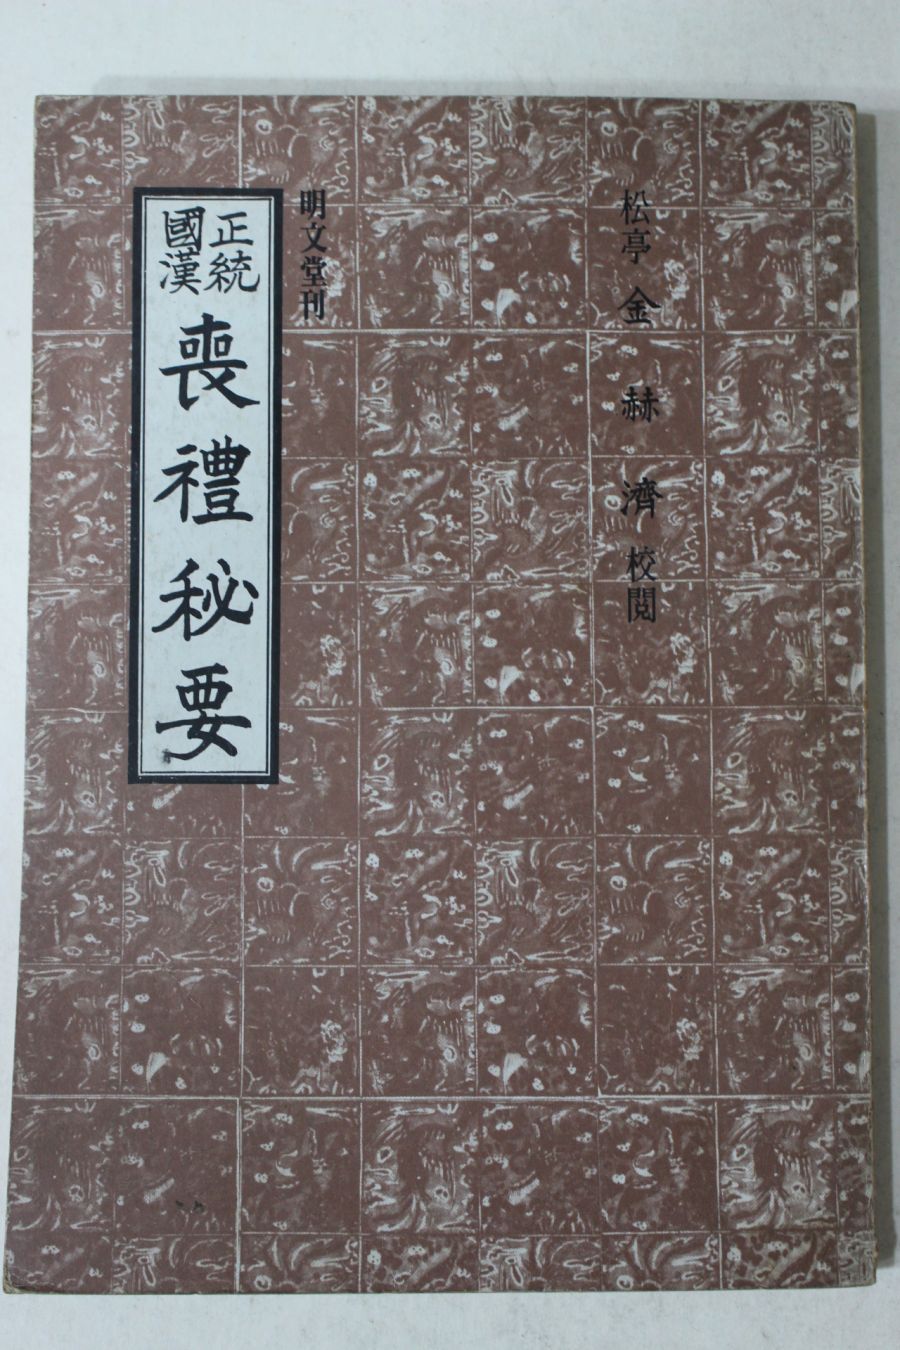 松亭 金赫濟 校閱
明文堂刊
正統
國漢
喪禮秘要